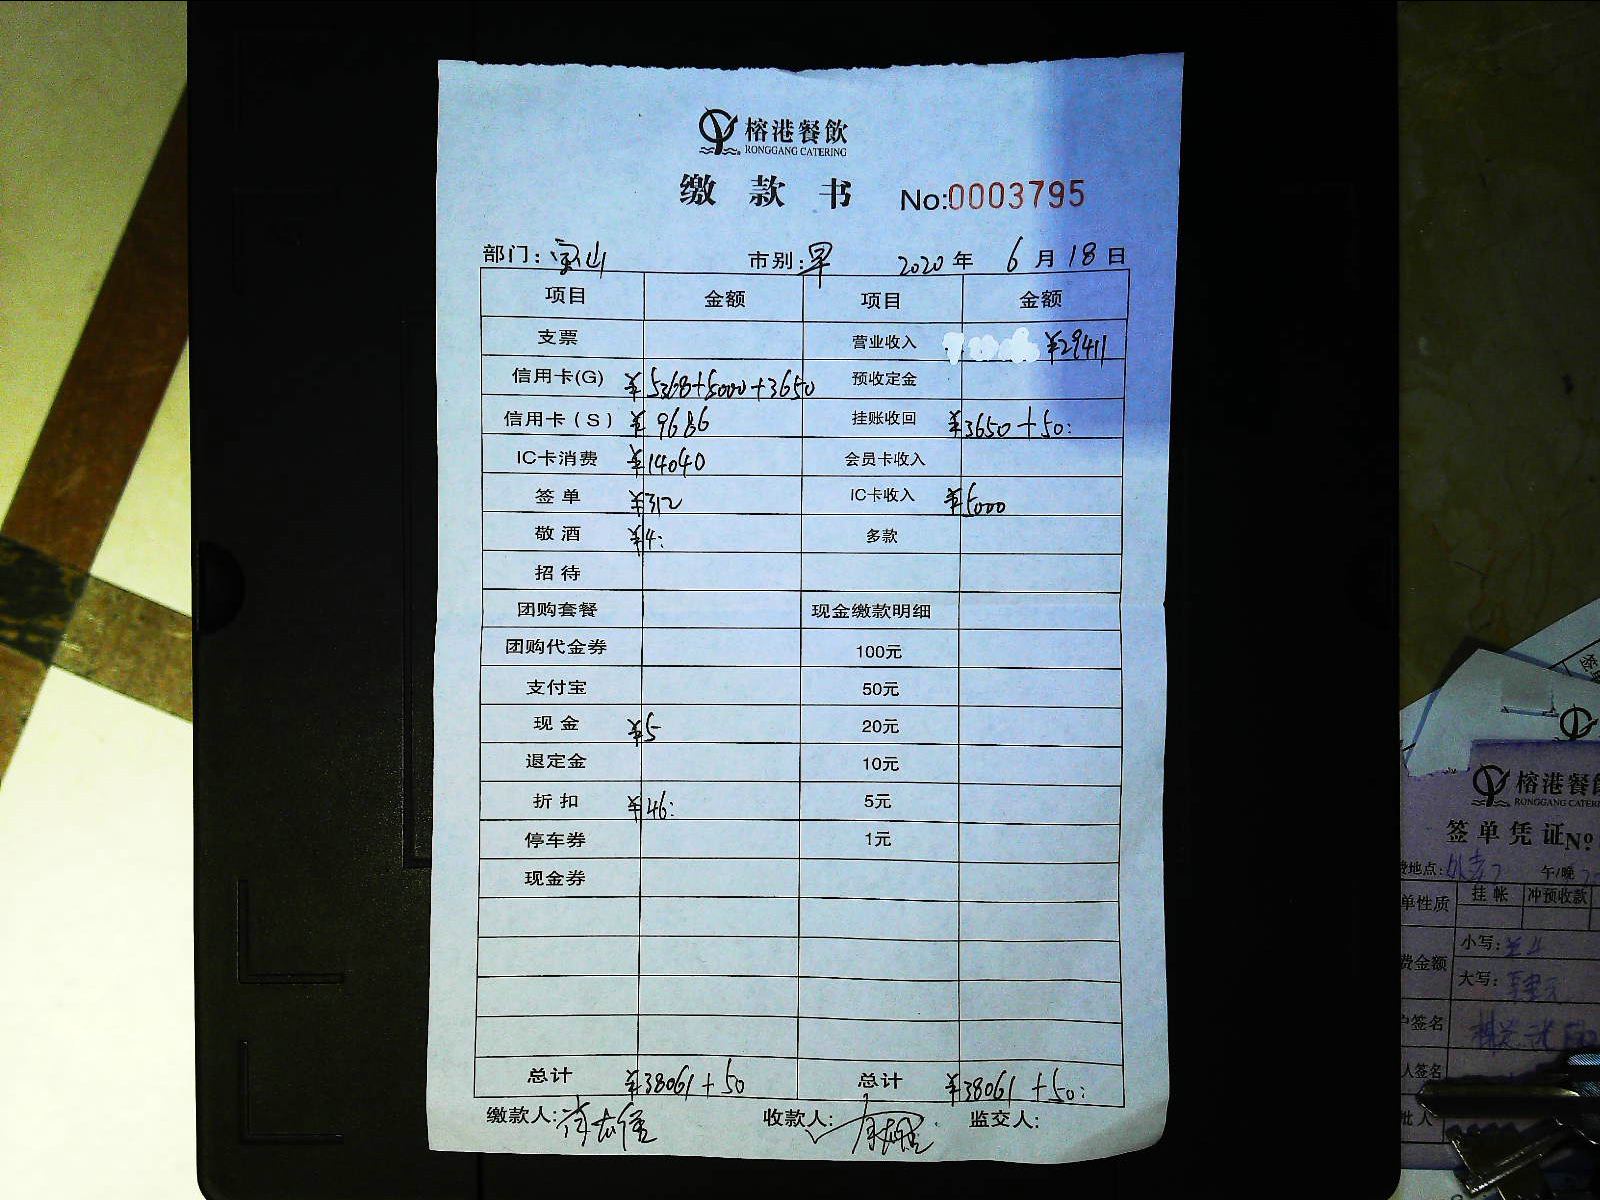 榕港餐飲
RONGGANG CATERING
缴款书 No:0003795
部门:宝山 市别:早 2020年6月18日
项目 金额 项目 金额
支票 营业收入 ¥29411
信用卡(G) ¥5368+5000+3650 预收定金
信用卡(S) ¥9686 挂账收回 ¥3650+50:
IC卡消费 ¥14040 会员卡收入
签单 ¥312 IC卡收入 ¥5000
敬酒 ¥4: 多款
招待
团购套餐 现金缴款明细
团购代金券 100元
支付宝 50元
现金 ¥5 20元
退定金 10元
折扣 ¥46: 5元
停车券 1元
现金券
总计 ¥38061+50 总计 ¥38061+50:
缴款人: 收款人: 监交人:
榕港餐
RONGGANG CATER
签单凭证No
费地点: 午/晚
单性质 挂帐 冲预收款
费金额 小写:
大写:
户签名
人签名
批人